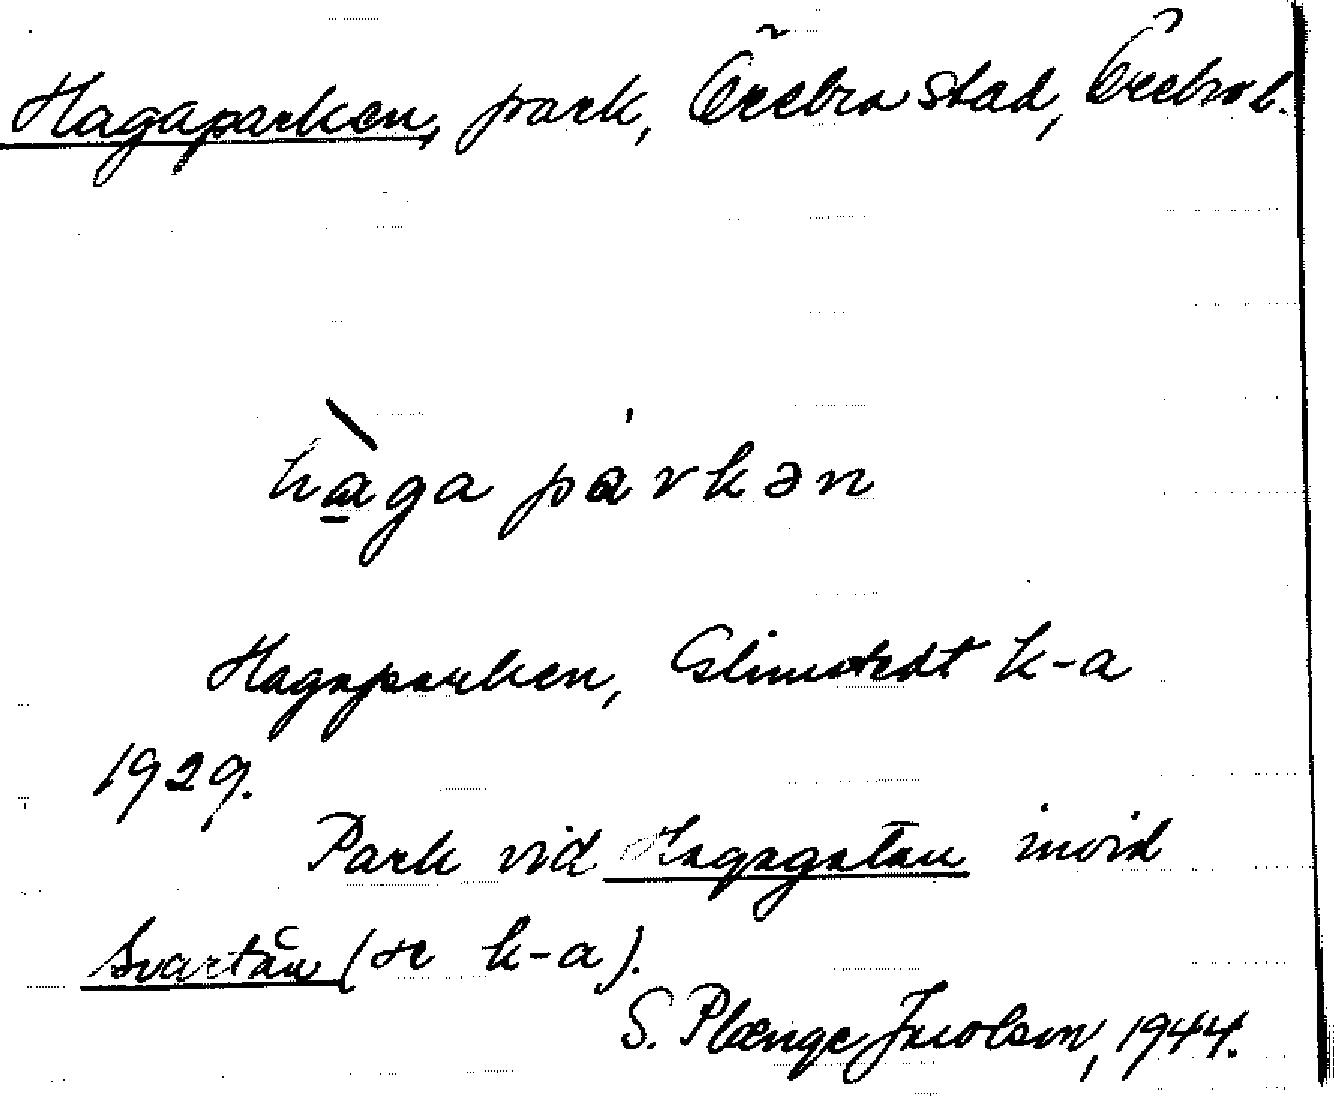 Hagaparken, park, Örebro stad, Örebro l.
hàga pàrkən
Hagaparken, Glimstedt k-a
1929.
Park vid Hagagatan invid
Svartån (se k-a).
S. Plænge Jacobson, 1944.